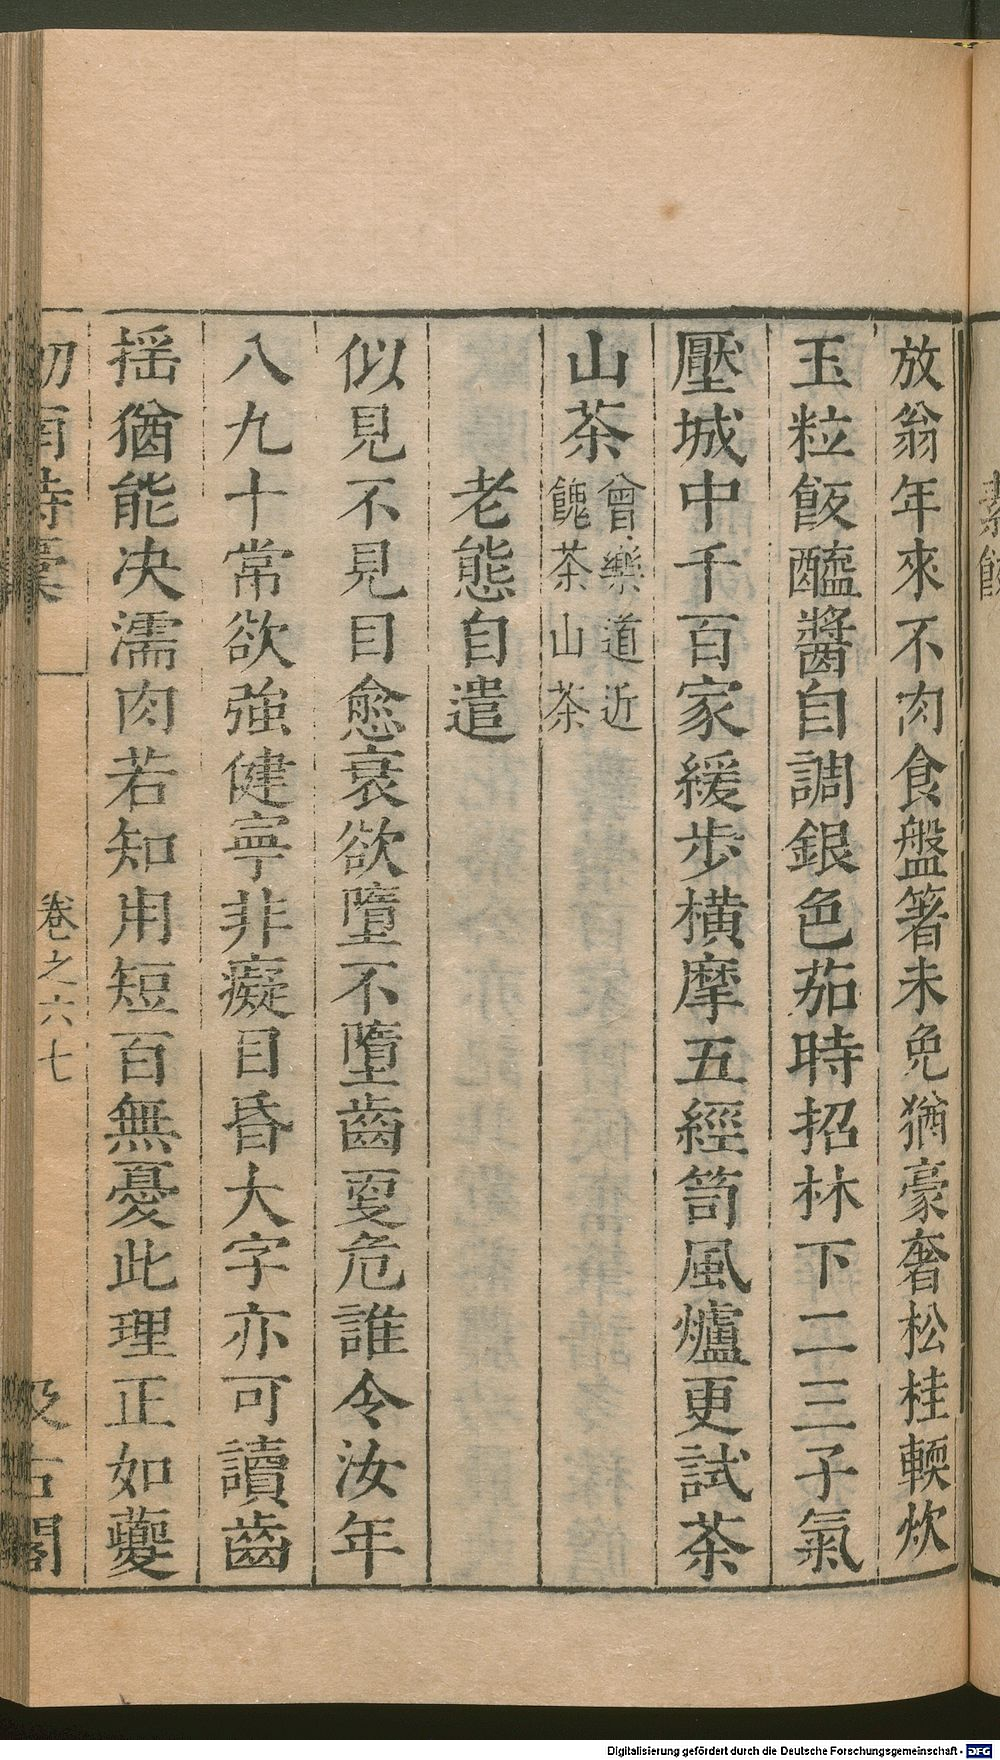 放翁年來不肉食盤箸未免猶豪奢松桂輭炊
玉粒飯醯醬自調銀色茄時招林下二三子氣
壓城中千百家緩步橫摩五經笥風爐更試茶
山茶曾樂道近餽茶山茶
老態自遣
似見不見目愈衰欲墮不墮齒更危誰令汝年
八九十常欲強健寧非癡目昏大字亦可讀齒
揺猶能决濡肉若知用短百無憂此理正如夔
卷之六七
Digitalisierung gefördert durch die Deutsche Forschungsgemeinschaft - DFG